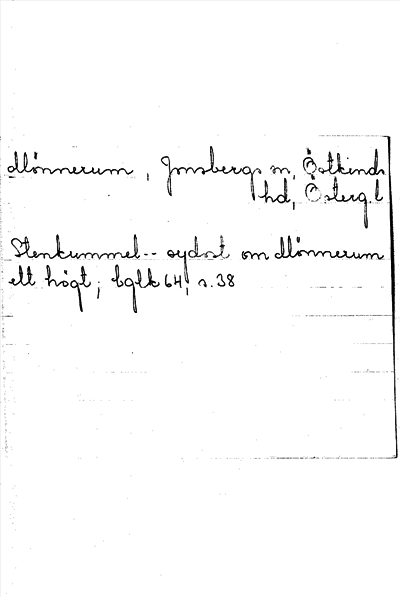 Mönnerum, Jonsbergs sn, Östkinds
hd, Österg.l
Stenkummel-- sydost om Mönnerum
ett högt; bglk 64, s.38